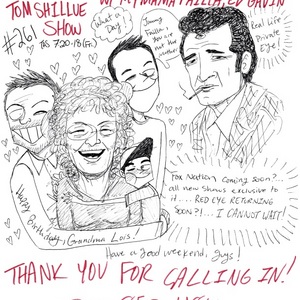 TOM SHILLUE
SHOW
W/
FAILLA, ED GAVIN
#261
7-20-18 (Fri.)
"What a
Day"
Jimmy
Failla,
You are
not the
Real Life
Private
Eye!
Fox Nation Coming Soon?...
all new Shows exclusive to
it.... RED EYE RETURNING
SOON?!... I CANNOT WAIT!
Happy Birthday, Grandma Lois!
Have a good weekend, guys!
THANK YOU FOR CALLING IN!